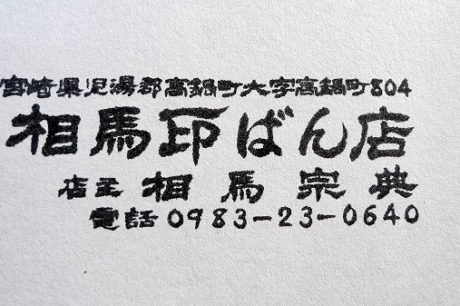 宮崎県児湯郡高鍋町大字高鍋町804
相馬印ばん店
店主 相馬宗典
電話0983-23-0640